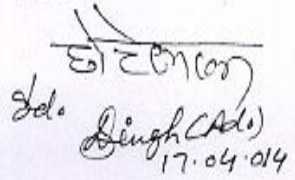 छोटेलाल
Sd.
Singh (Ad.)
17.04.014